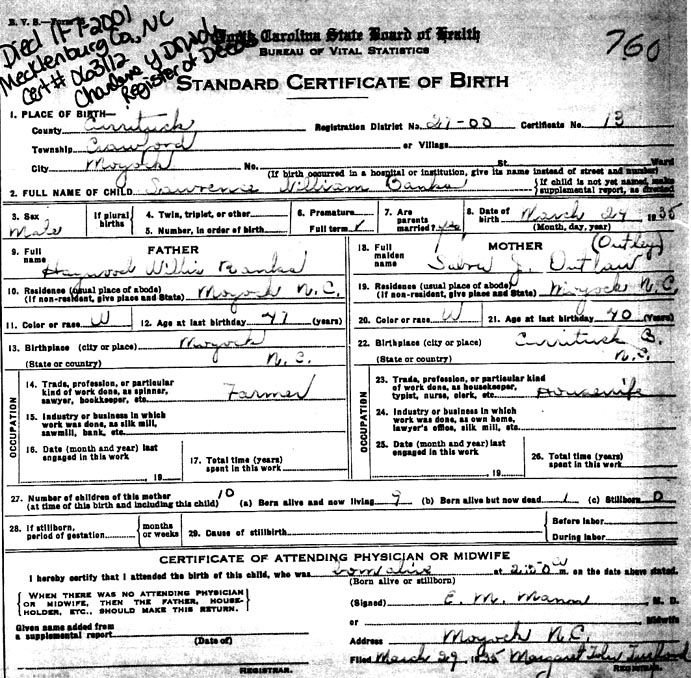 N. C. B. V. S.—Form
North Carolina State Board of Health
BUREAU OF VITAL STATISTICS
760
Died 1-7-2001
Mecklenburg Co., NC
Cert # 063112
Register of Deeds
STANDARD CERTIFICATE OF BIRTH
1. PLACE OF BIRTH—
County Currituck Registration District No. 27-00 Certificate No. 13
Township Crawford or Village
City Moyock No. St. Ward
(If birth occurred in a hospital or institution, give its name instead of street and number)
2. FULL NAME OF CHILD Lawrence William Banks { If child is not yet named, make supplemental report, as directed
3. Sex Male If plural births { 4. Twin, triplet, or other 5. Number, in order of birth 6. Premature Full term ✓ 7. Are parents married? yes 8. Date of birth March 27 1935 (Month, day, year)
9. Full name FATHER Haywood Willis Banks
18. Full maiden name MOTHER (Outlaw) J. Outlaw
10. Residence (usual place of abode) (If non-resident, give place and State) Moyock N.C.
19. Residence (usual place of abode) (If non-resident, give place and State) Moyock N.C.
11. Color or race W 12. Age at last birthday 47 (years)
20. Color or race W 21. Age at last birthday 40 (Years)
13. Birthplace (city or place) Moyock
(State or country) N.C.
22. Birthplace (city or place) Currituck
(State or country) N.C.
OCCUPATION
14. Trade, profession, or particular kind of work done, as spinner, sawyer, bookkeeper, etc. Farmer
15. Industry or business in which work was done, as silk mill, sawmill, bank, etc.
16. Date (month and year) last engaged in this work , 19
17. Total time (years) spent in this work
OCCUPATION
23. Trade, profession, or particular kind of work done, as housekeeper, typist, nurse, clerk, etc. Housewife
24. Industry or business in which work was done, as own home, lawyer's office, silk mill, etc.
25. Date (month and year) last engaged in this work , 19
26. Total time (years) spent in this work
27. Number of children of this mother (at time of this birth and including this child) 10 (a) Born alive and now living 9 (b) Born alive but now dead 1 (c) Stillborn 0
28. If stillborn, period of gestation { months or weeks 29. Cause of stillbirth { Before labor During labor
CERTIFICATE OF ATTENDING PHYSICIAN OR MIDWIFE
I hereby certify that I attended the birth of this child, who was born alive at 2:20 a m. on the date above stated.
(Born alive or stillborn)
{ WHEN THERE WAS NO ATTENDING PHYSICIAN OR MIDWIFE, THEN THE FATHER, HOUSEHOLDER, ETC., SHOULD MAKE THIS RETURN. }
(Signed) E. M. M. D.
or Midwife
Given name added from a supplemental report (Date of)
Address Moyock N.C.
REGISTRAR.
Filed March 29, 1935 Margaret
REGISTRAR.